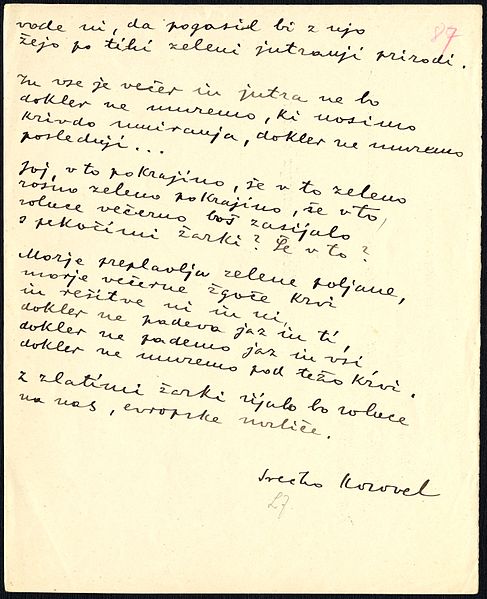 vode ni, da pogasil bi z njo
87
žejo po tihi zeleni jutranji prirodi.
In vse je večer in jutra ne bo
dokler ne umremo, ki nosimo
krivdo umiranja, dokler ne umremo
poslednji...
Joj, v to pokrajino, še v to zeleno
rosno zeleno pokrajino, še v to,
solnce večerno boš zasijalo
s pekočimi žarki? Še v to?
Morje preplavlja zelene poljane,
morje večerne žgoče krvi
in rešitve ni in ni,
dokler ne padeva jaz in ti,
dokler ne pademo jaz in vsi,
dokler ne umremo pod težo krvi.
Z zlatimi žarki sijalo bo solnce
na nas, evropske mrliče.
Srečko Kosovel